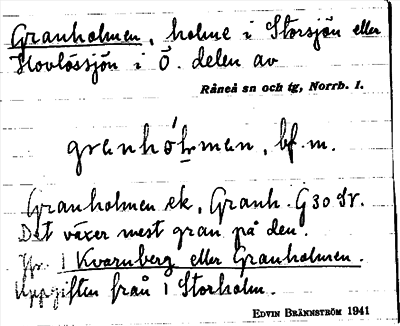 Granholmen, holme i Storsjön eller
Hovlössjön i Ö. delen av
Råneå sn och tg, Norrb. l.
granhóḷman, bf. m.
Granholmen ek, Granh. G30 Sr.
Det växer mest gran på den.
Jfr 1 Kvarnberg eller Granholmen.
Uppgiften från 1 Storholm.
EDVIN BRÄNNSTRÖM 1941